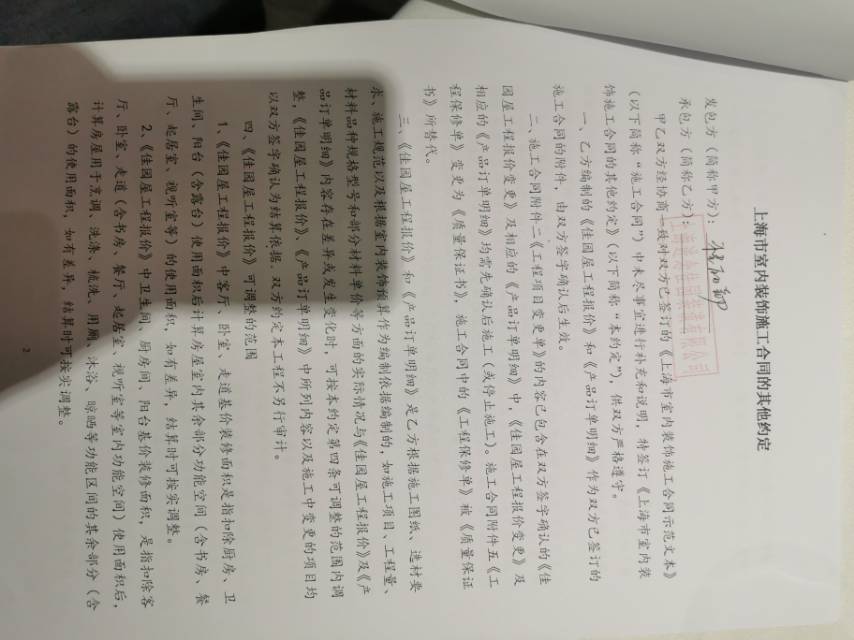 上海市室内装饰施工合同的其他约定
发包方（简称甲方）：
承包方（简称乙方）：
甲乙双方经协商一致对双方已签订的《上海市室内装饰施工合同示范文本》
（以下简称“施工合同”）中未尽事宜进行补充和说明，特签订《上海市室内装
饰施工合同的其他约定》（以下简称“本约定”），供双方严格遵守。
一、乙方编制的《佳园屋工程报价》和《产品订单明细》作为双方已签订的
施工合同的附件，由双方签字确认后生效。
二、施工合同附件二《工程项目变更单》的内容已包含在双方签字确认的《佳
园屋工程报价变更》及相应的《产品订单明细》中，《佳园屋工程报价变更》及
相应的《产品订单明细》均需先确认后施工（或停止施工）。施工合同附件五《工
程保修单》变更为《质量保证书》，施工合同中的《工程保修单》被《质量保证
书》所替代。
三、《佳园屋工程报价》和《产品订单明细》是乙方根据施工图纸、选材要
求、施工规范以及根据室内装饰预算作为编制依据编制的，如施工项目、工程量、
材料品种规格型号和部分材料单价等方面的实际情况与《佳园屋工程报价》及《产
品订单明细》内容存在差异或发生变化时，可按本约定第四条可调整的范围内调
整，《佳园屋工程报价》、《产品订单明细》中所列内容以及施工中变更的项目均
以双方签字确认为结算依据。双方约定本工程不另行审计。
四、《佳园屋工程报价》可调整的范围
1、《佳园屋工程报价》中客厅、卧室、走道基价装修面积是指扣除厨房、卫
生间、阳台（含露台）使用面积后计算房屋室内其余部分功能空间（含书房、餐
厅、起居室、视听室等）的使用面积，如有差异，结算时可按实调整。
2、《佳园屋工程报价》中卫生间、厨房间、阳台基价装修面积，是指扣除客
厅、卧室、走道（含书房、餐厅、起居室、视听室等室内功能空间）使用面积后，
计算房屋用于烹调、洗涤、植洗、用厕、沐浴、晾晒等功能区间的其余部分（含
露台）的使用面积，如有差异，结算时可按实调整。
2